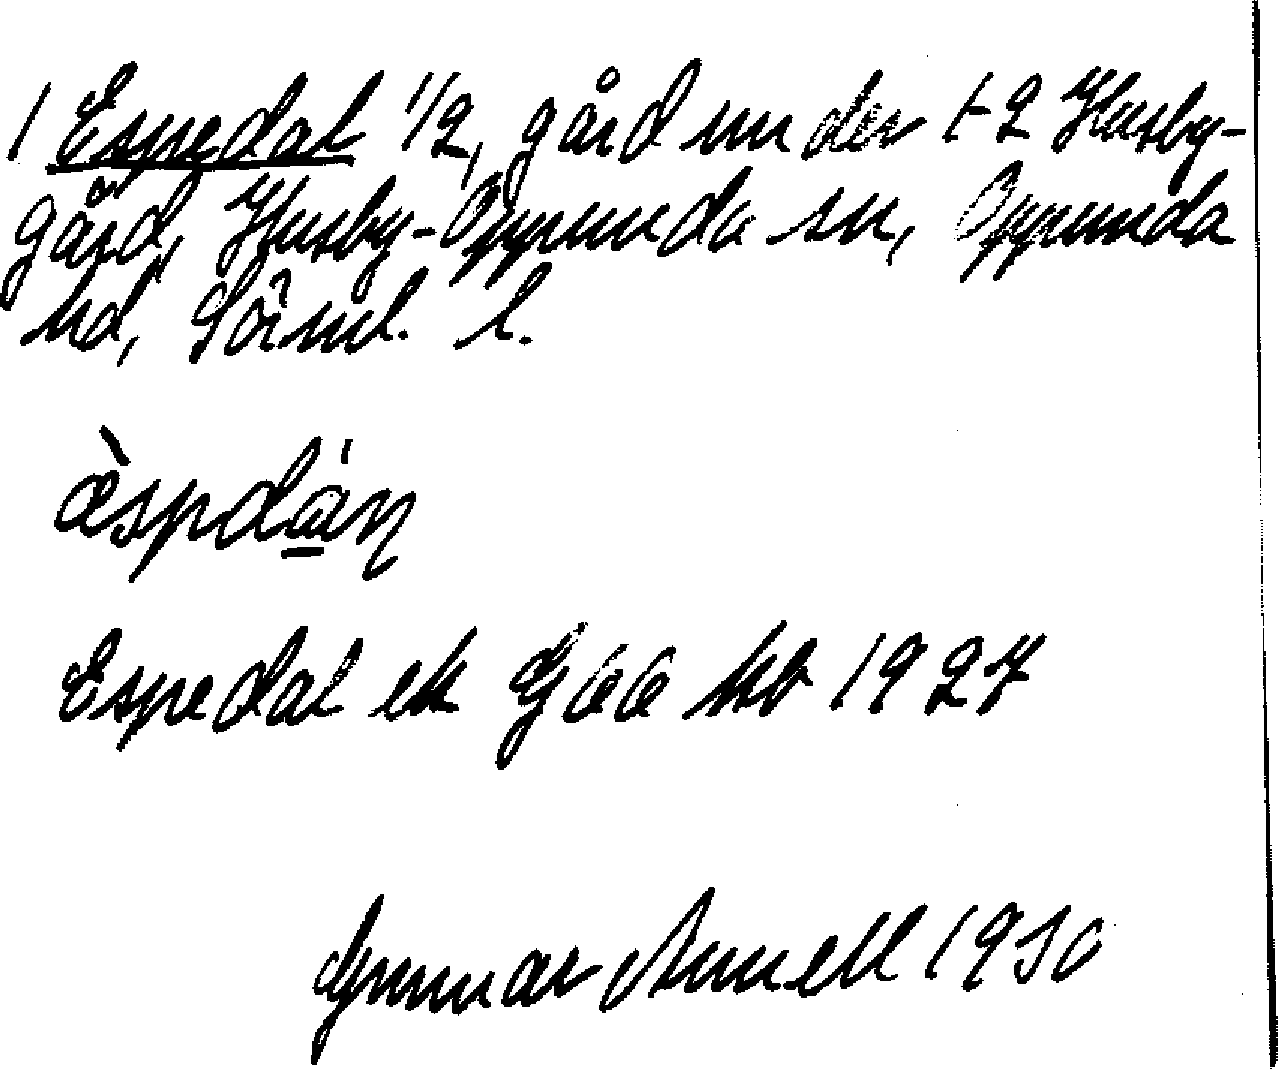 1 Espedal 1/2, gård under 1-2 Husby-
gård, Husby-Oppunda sn, Oppunda
hd, Sörml. l.
èspdáɳ
Espedal ek G66 kb 1927
Gunnar Anell 1930